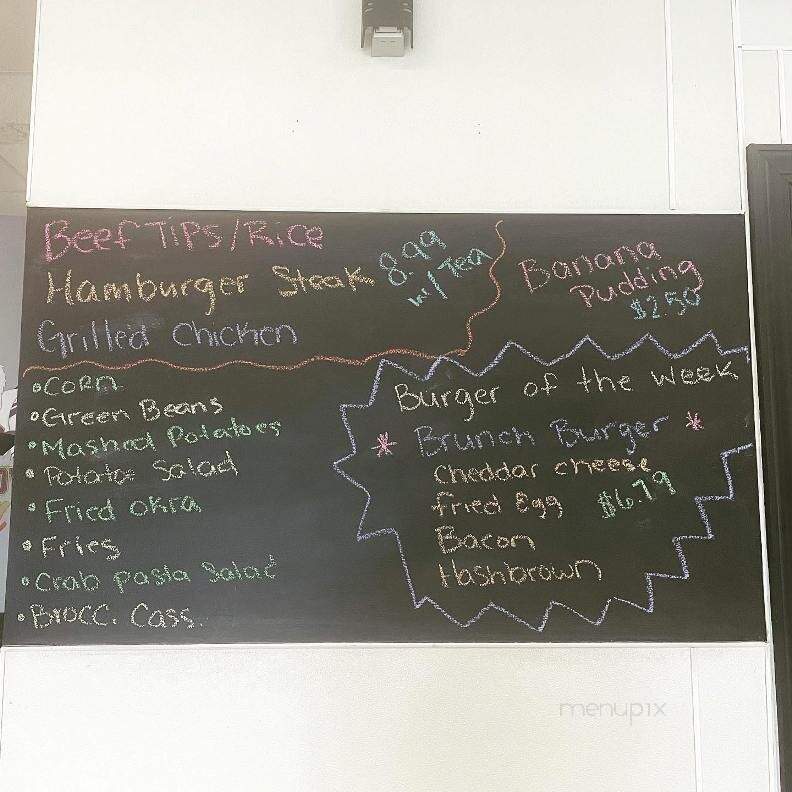 Beef Tips/Rice
Hamburger Steak
8.99
w/ Tea
Grilled Chicken
Banana
Pudding
$2.50
• Corn
• Green Beans
• Mashed Potatoes
• Potatoe Salad
• Fried Okra
• Fries
• Crab pasta Salad
• Brocc. Cass.
Burger of the week
* Brunch Burger *
Cheddar cheese
fried Egg
$6.79
Bacon
Hashbrown
menupix